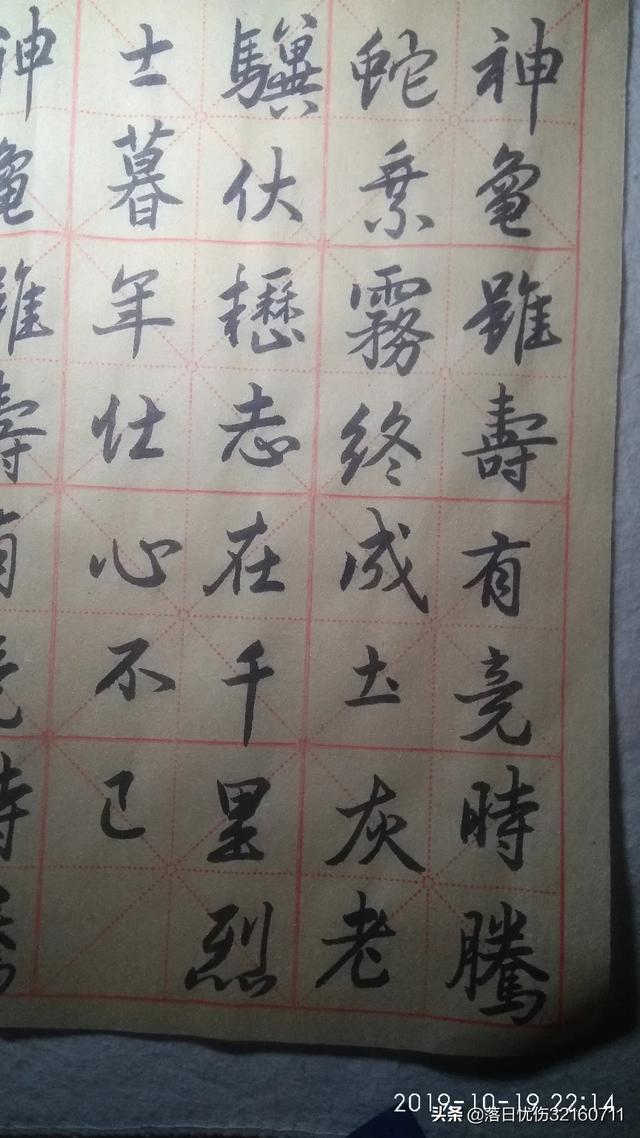 神龜雖壽有竟時騰
蛇乗霧終成土灰老
驥伏櫪志在千里烈
士暮年壮心不已
神龜雖壽有竟時騰
2019-10-19 22:14
头条 @落日忧伤32160711